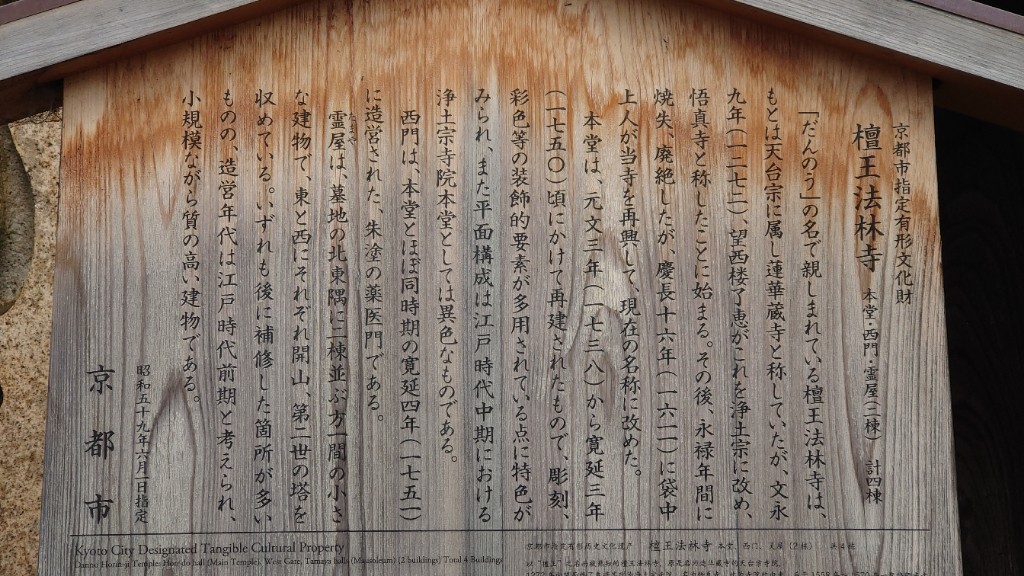 京都市指定有形文化財
檀王法林寺 本堂・西門・霊屋(二棟) 計四棟
「だんのう」の名で親しまれている檀王法林寺は、
もとは天台宗に属し蓮華蔵寺と称していたが、文永
九年(一二七二)、望西楼了恵がこれを浄土宗に改め、
悟真寺と称したことに始まる。その後、永禄年間に
焼失、廃絶したが、慶長十六年(一六一一)に袋中
上人が当寺を再興して、現在の名称に改めた。
本堂は、元文三年(一七三八)から寛延三年
(一七五〇)頃にかけて再建されたもので、彫刻、
彩色等の装飾的要素が多用されている点に特色が
みられ、また平面構成は江戸時代中期における
浄土宗寺院本堂としては異色なものである。
西門は、本堂とほぼ同時期の寛延四年(一七五一)
に造営された、朱塗の薬医門である。
霊屋は、墓地の北東隅に二棟並ぶ方一間の小さ
な建物で、東と西にそれぞれ開山、第二世の塔を
収めている。いずれも後に補修した箇所が多い
ものの、造営年代は江戸時代前期と考えられ、
小規模ながら質の高い建物である。
昭和五十九年六月一日指定
京都市
Kyoto City Designated Tangible Cultural Property
Danno Horin-ji Temple: Hon-do hall (Main Temple), West Gate, Tamaya halls (Mausoleum) (2 buildings) Total 4 Buildings
檀王法林寺 本堂、西门、